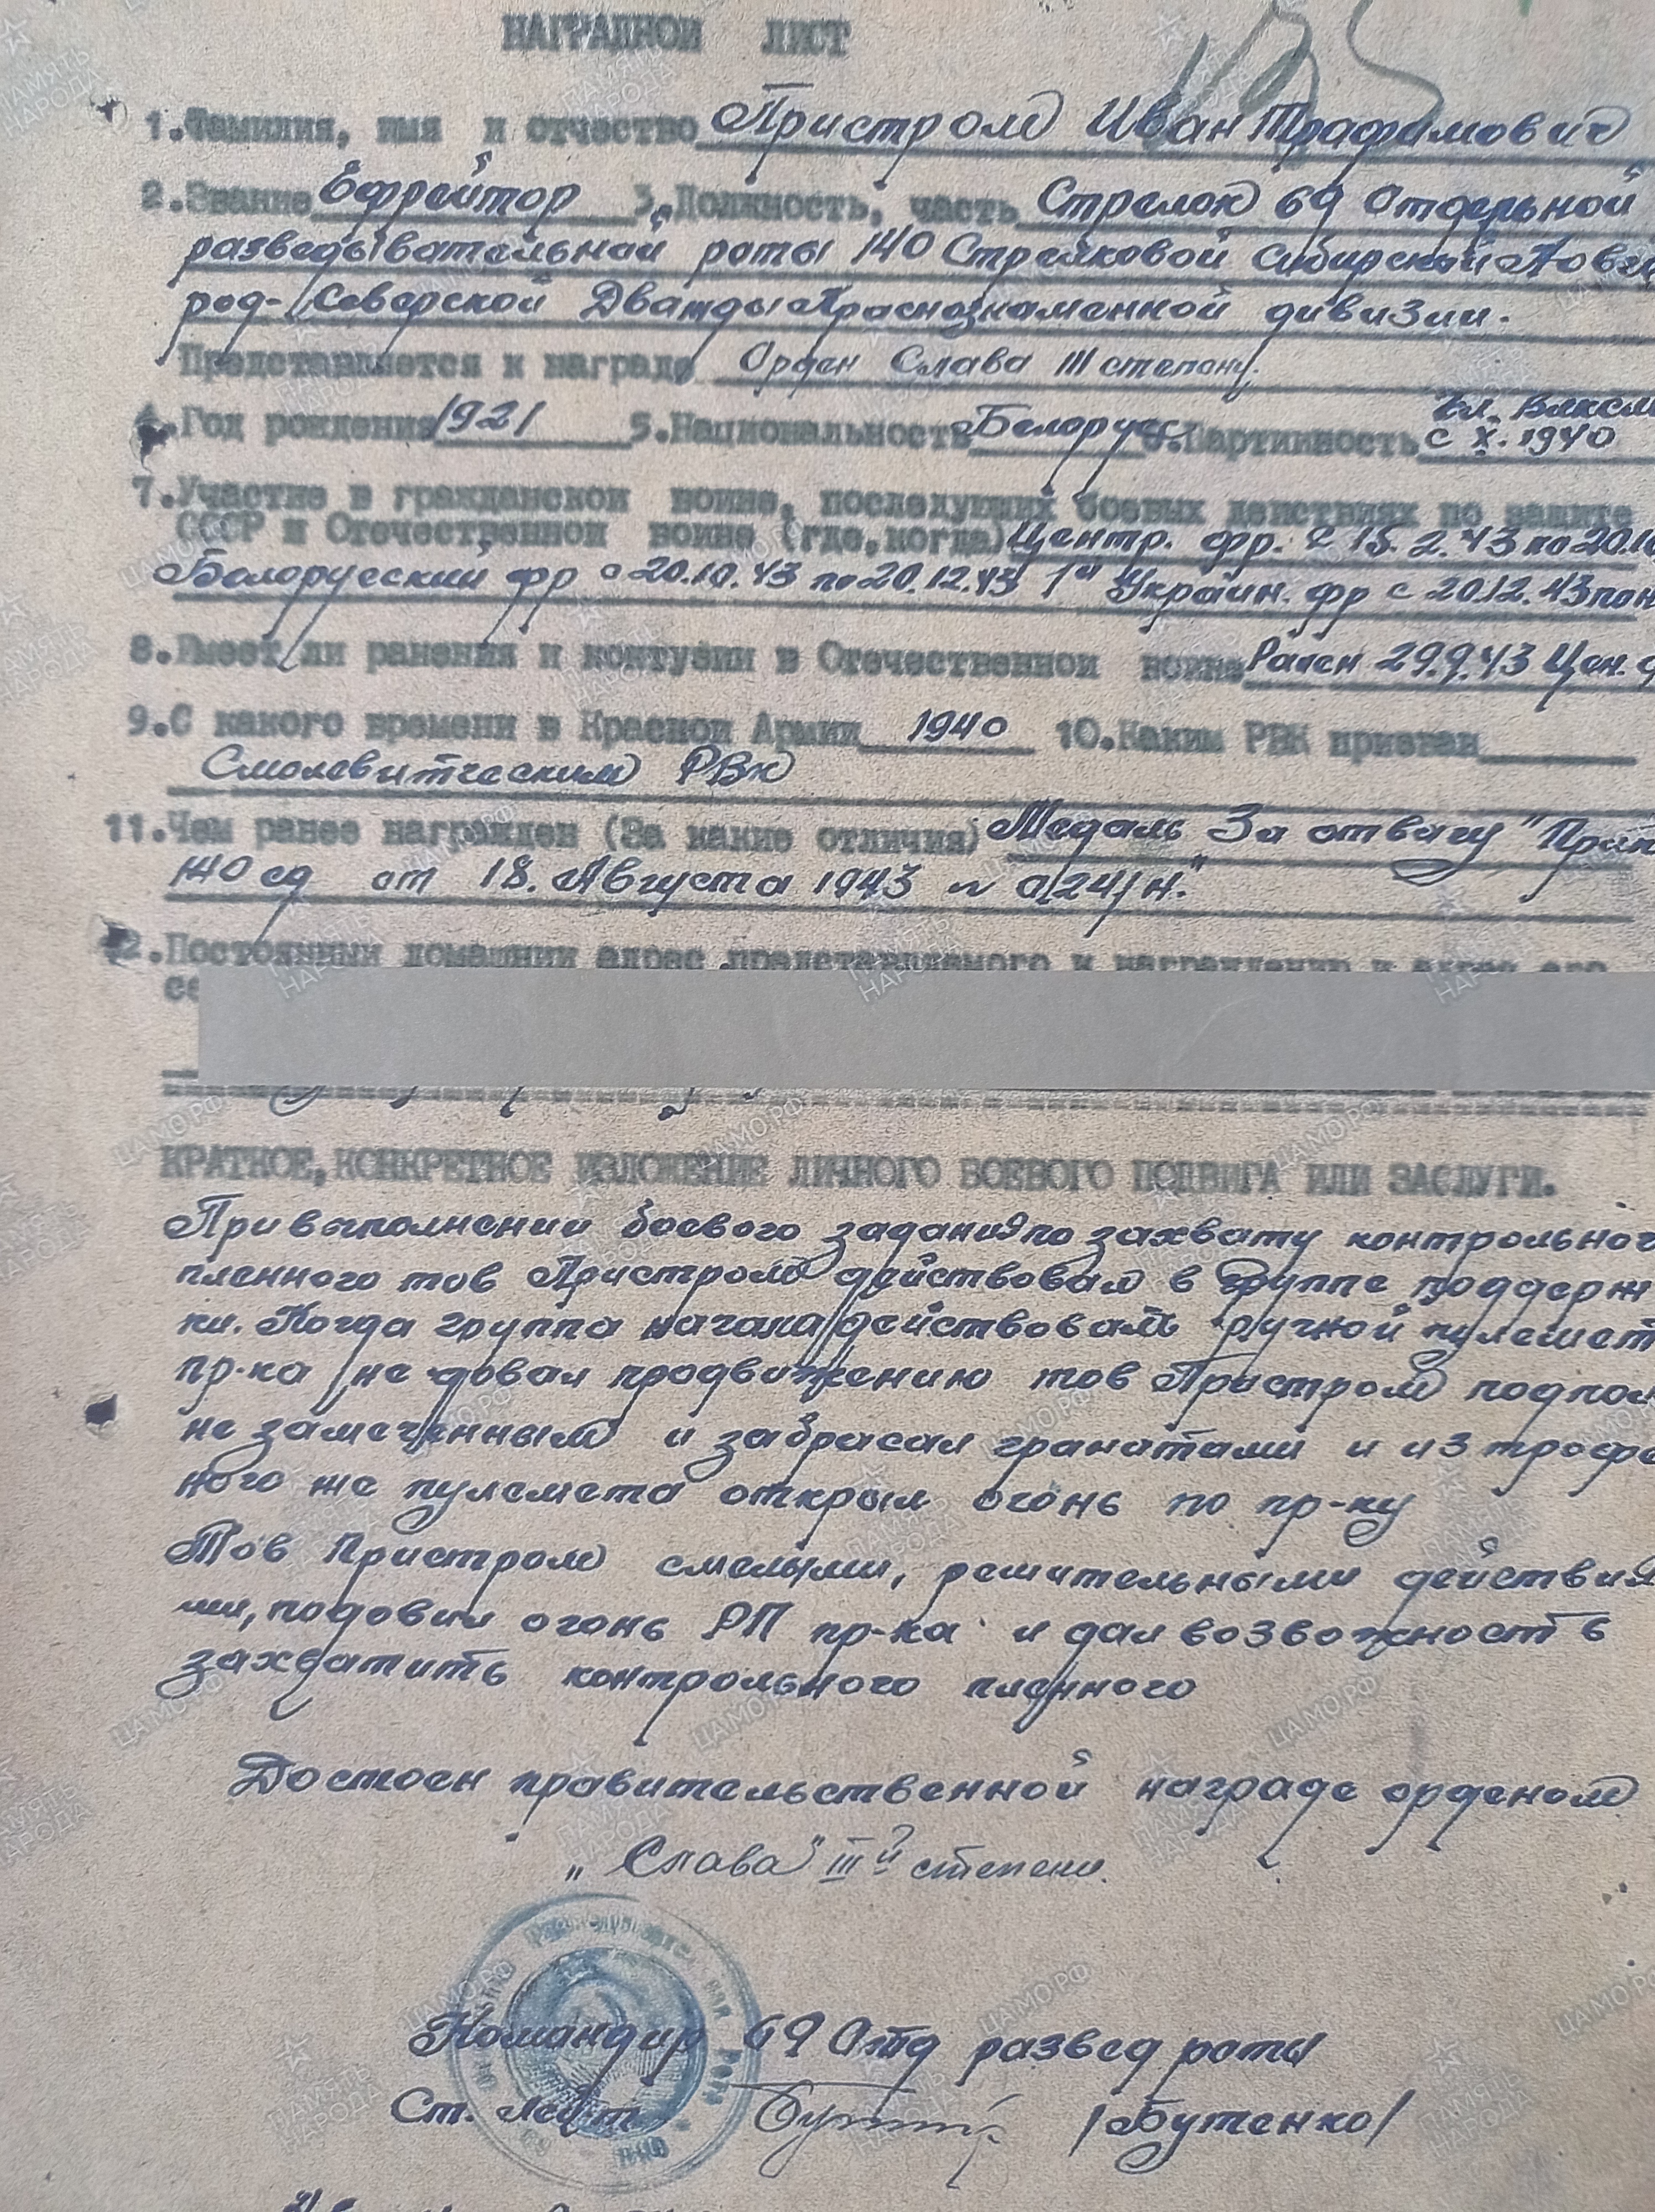 НАГРАДНОЙ ЛИСТ
1.Фамилия, имя и отчество Пристром Иван Трафимович
2.Звание Ефрейтор 3.Должность, часть Стрелок 69 Отдельной
разведывательной роты 140 Стрелковой Сибирской Новг
род-Северской Дважды Краснознаменной дивизии.
Представляется к награде Орден Слава III степени.
Чл. Влксм
4.Год рождения 1921 5.Национальность Белорус 6.Партийность с X. 1940
7.Участие в гражданской войне, последующих боевых действиях по защите
СССР и Отечественной войне (где,когда) Центр. фр. с 15.2.43 по 20.10
Белорусский фр с 20.10.43 по 20.12.43 1й Украин. фр с 20.12.43 по н
8.Имеет ли ранения и контузии в Отечественной войне Ранен 29.9.43 Цен. ф
9.С какого времени в Красной Армии 1940 10.Каким РВК призван
Смолевитческим РВК
11.Чем ранее награжден (За какие отличия) Медаль "За отвагу" Прик
140 сд от 18. Августа 1943 № 0/24/н."
12.Постоянный домашний адрес представляемого к награждению и адрес его
се
КРАТКОЕ,КОНКРЕТНОЕ ИЗЛОЖЕНИЕ ЛИЧНОГО БОЕВОГО ПОДВИГА ИЛИ ЗАСЛУГИ.
При выполнении боевого задания по захвату контрольног
пленного тов Пристром действовал в группе поддерж
ки. Когда группа начала действовать ручной пулемет
пр-ка не довал продвижению тов Пристром подпол
не замеченным и забрасал гранатами и из трофе
ного же пулемета открыл огонь по пр-ку
Тов Пристром смелыми, решительными действия
ми, подовил огонь РП пр-ка и дал возвожность
захватить контрольного пленного
Достоен правительственной награде орденом
„Слава" III й степени.
Командир 69 Отд развед роты
Ст. Лейт /Бутенко/